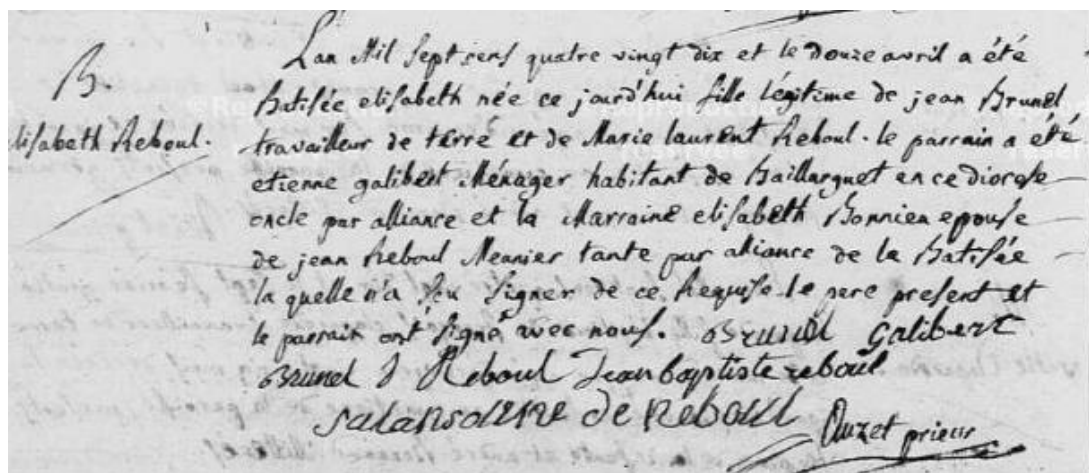 B
elisabeth Reboul.
L'an Mil sept sens quatre vingt dix et le douze avril a été
Batisée elisabeth née ce jourd'hui fille légitime de jean Brunel
travailleur de terre et de Marie laurent Reboul. le parrain a été
etienne galibert Ménager habitant de Baillarguet en ce diocese
oncle par alliance et la Marraine elisabeth Bonnien epouse
de jean Reboul Meunier tante par alliance de la Batisée
la quelle n'a seu signer de ce Requise. le pere present et
le parrain ont signé avec nous. Brunel Galibert
Brunel Reboul Jean baptiste reboul
de Reboul
Ouzet prieur